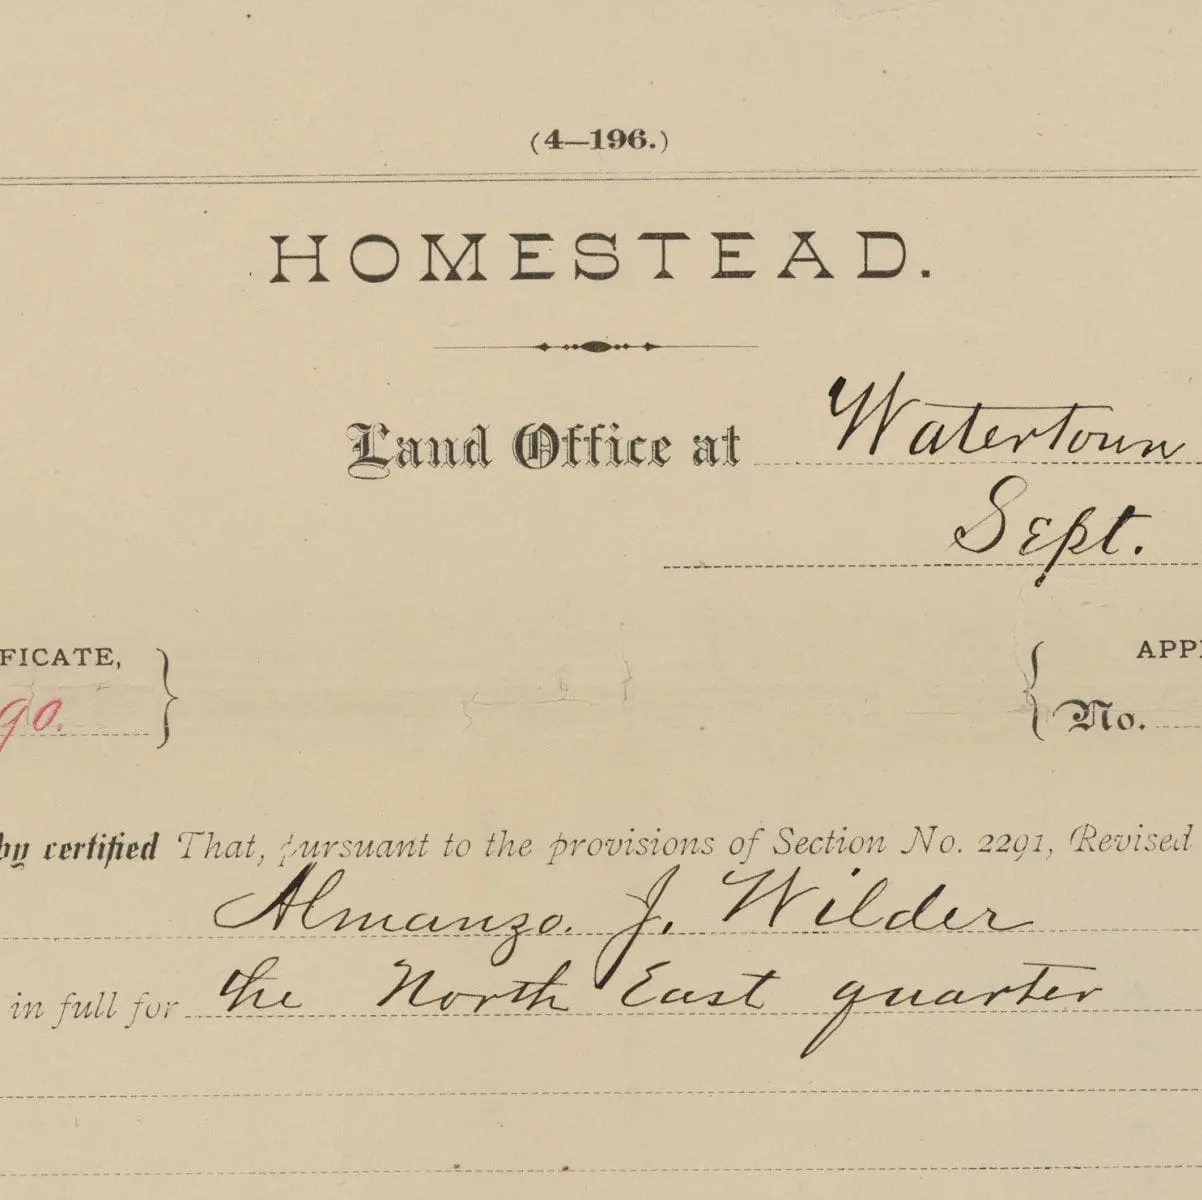 (4—196.)
HOMESTEAD.
Land Office at Watertown
Sept.
FICATE,
APP
90.
No.
by certified That, pursuant to the provisions of Section No. 2291, Revised
Almanzo. J. Wilder
in full for the North East quarter